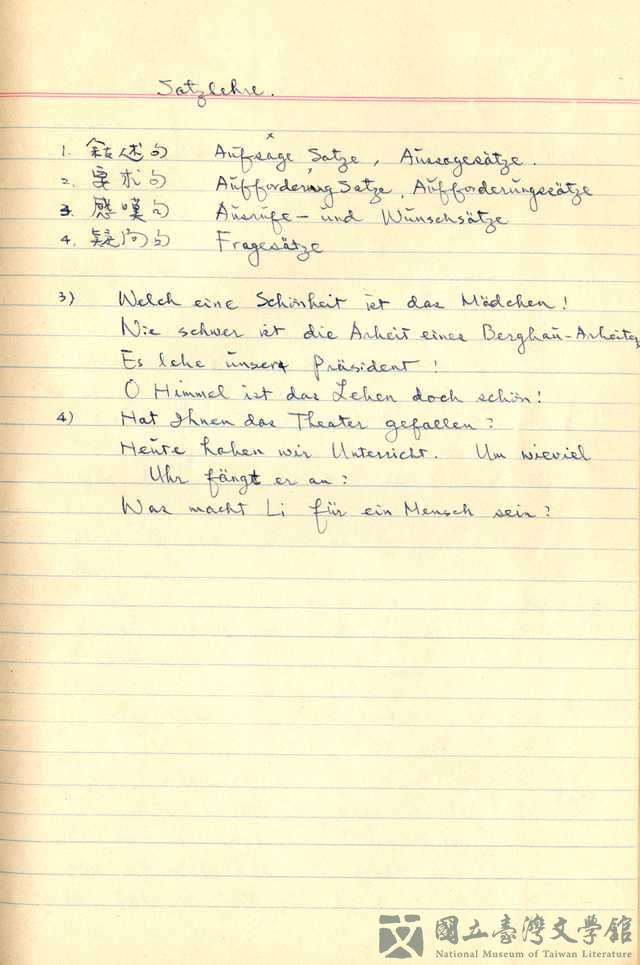 Satzlehre.
1. 敘述句 Aufsage Satze, Aussagesätze.
2. 要求句 Aufforderung Satze, Aufforderungssätze
3. 感嘆句 Ausrufe- und Wunschsätze
4. 疑问句 Fragesätze
3) Welch eine Schönheit ist das Mädchen!
Wie schwer ist die Arbeit eines Bergbau-Arbeiters
Es lebe unser Präsident!
O Himmel ist das Leben doch schön!
4) Hat Ihnen das Theater gefallen?
Heute haben wir Unterricht. Um wieviel
Uhr fängt er an?
Was macht Li für ein Mensch sein?
國立臺灣文學館
National Museum of Taiwan Literature